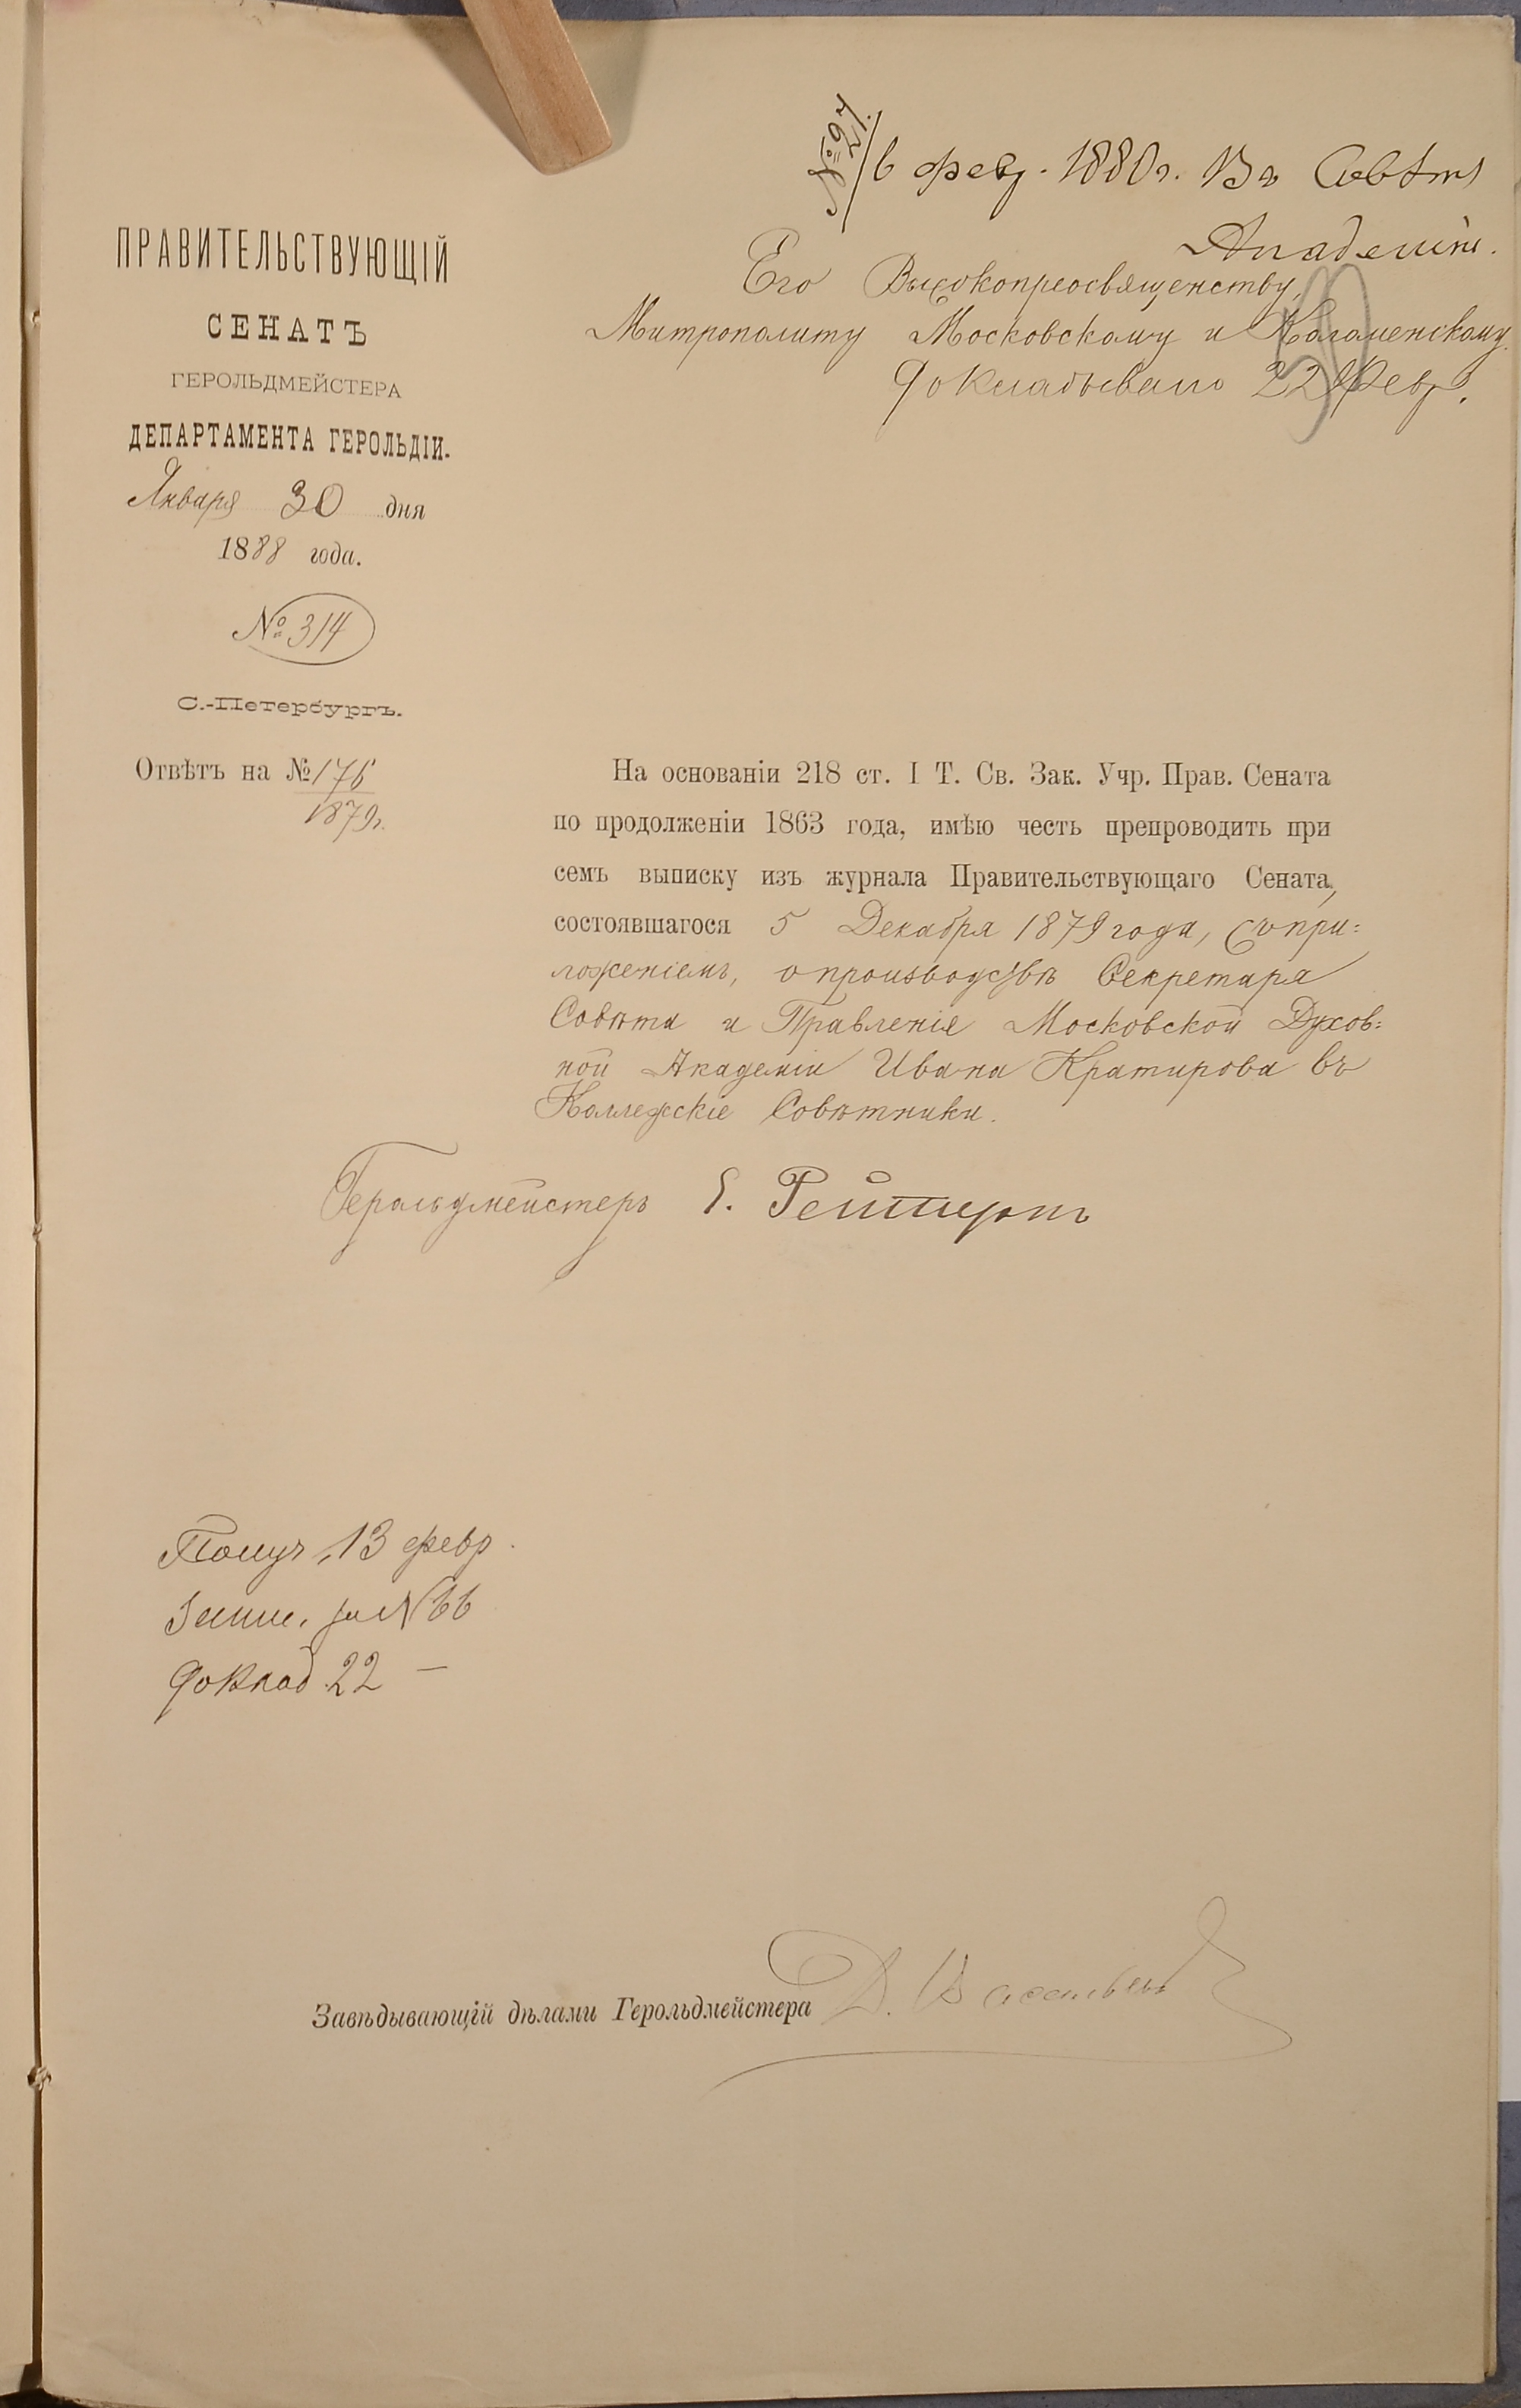 № 97.
6 фев. 1880 г. Въ Совѣтъ
Академіи.
Его Высокопреосвященству,
Митрополиту Московскому и Коломенскому.
Докладывано 22 Февр.
ПРАВИТЕЛЬСТВУЮЩІЙ
СЕНАТЪ
ГЕРОЛЬДМЕЙСТЕРА
ДЕПАРТАМЕНТА ГЕРОЛЬДІИ.
Января 30 дня
1888 года.
№ 314
С.-Петербургъ.
Отвѣтъ на № 176
1879 г.
На основаніи 218 ст. I Т. Св. Зак. Учр. Прав. Сената
по продолженіи 1863 года, имѣю честь препроводить при
семъ выписку изъ журнала Правительствующаго Сената,
состоявшагося 5 Декабря 1879 года, съ при=
ложеніемъ, о производствѣ Секретаря
Совѣта и Правленія Московской Духов=
ной Академіи Ивана Кратирова въ
Коллежскіе Совѣтники.
Герольдмейстеръ Е. Рейтернъ
Получ. 13 февр.
Запис. за № 66
Доклад. 22 —
Завѣдывающій дѣлами Герольдмейстера Д.